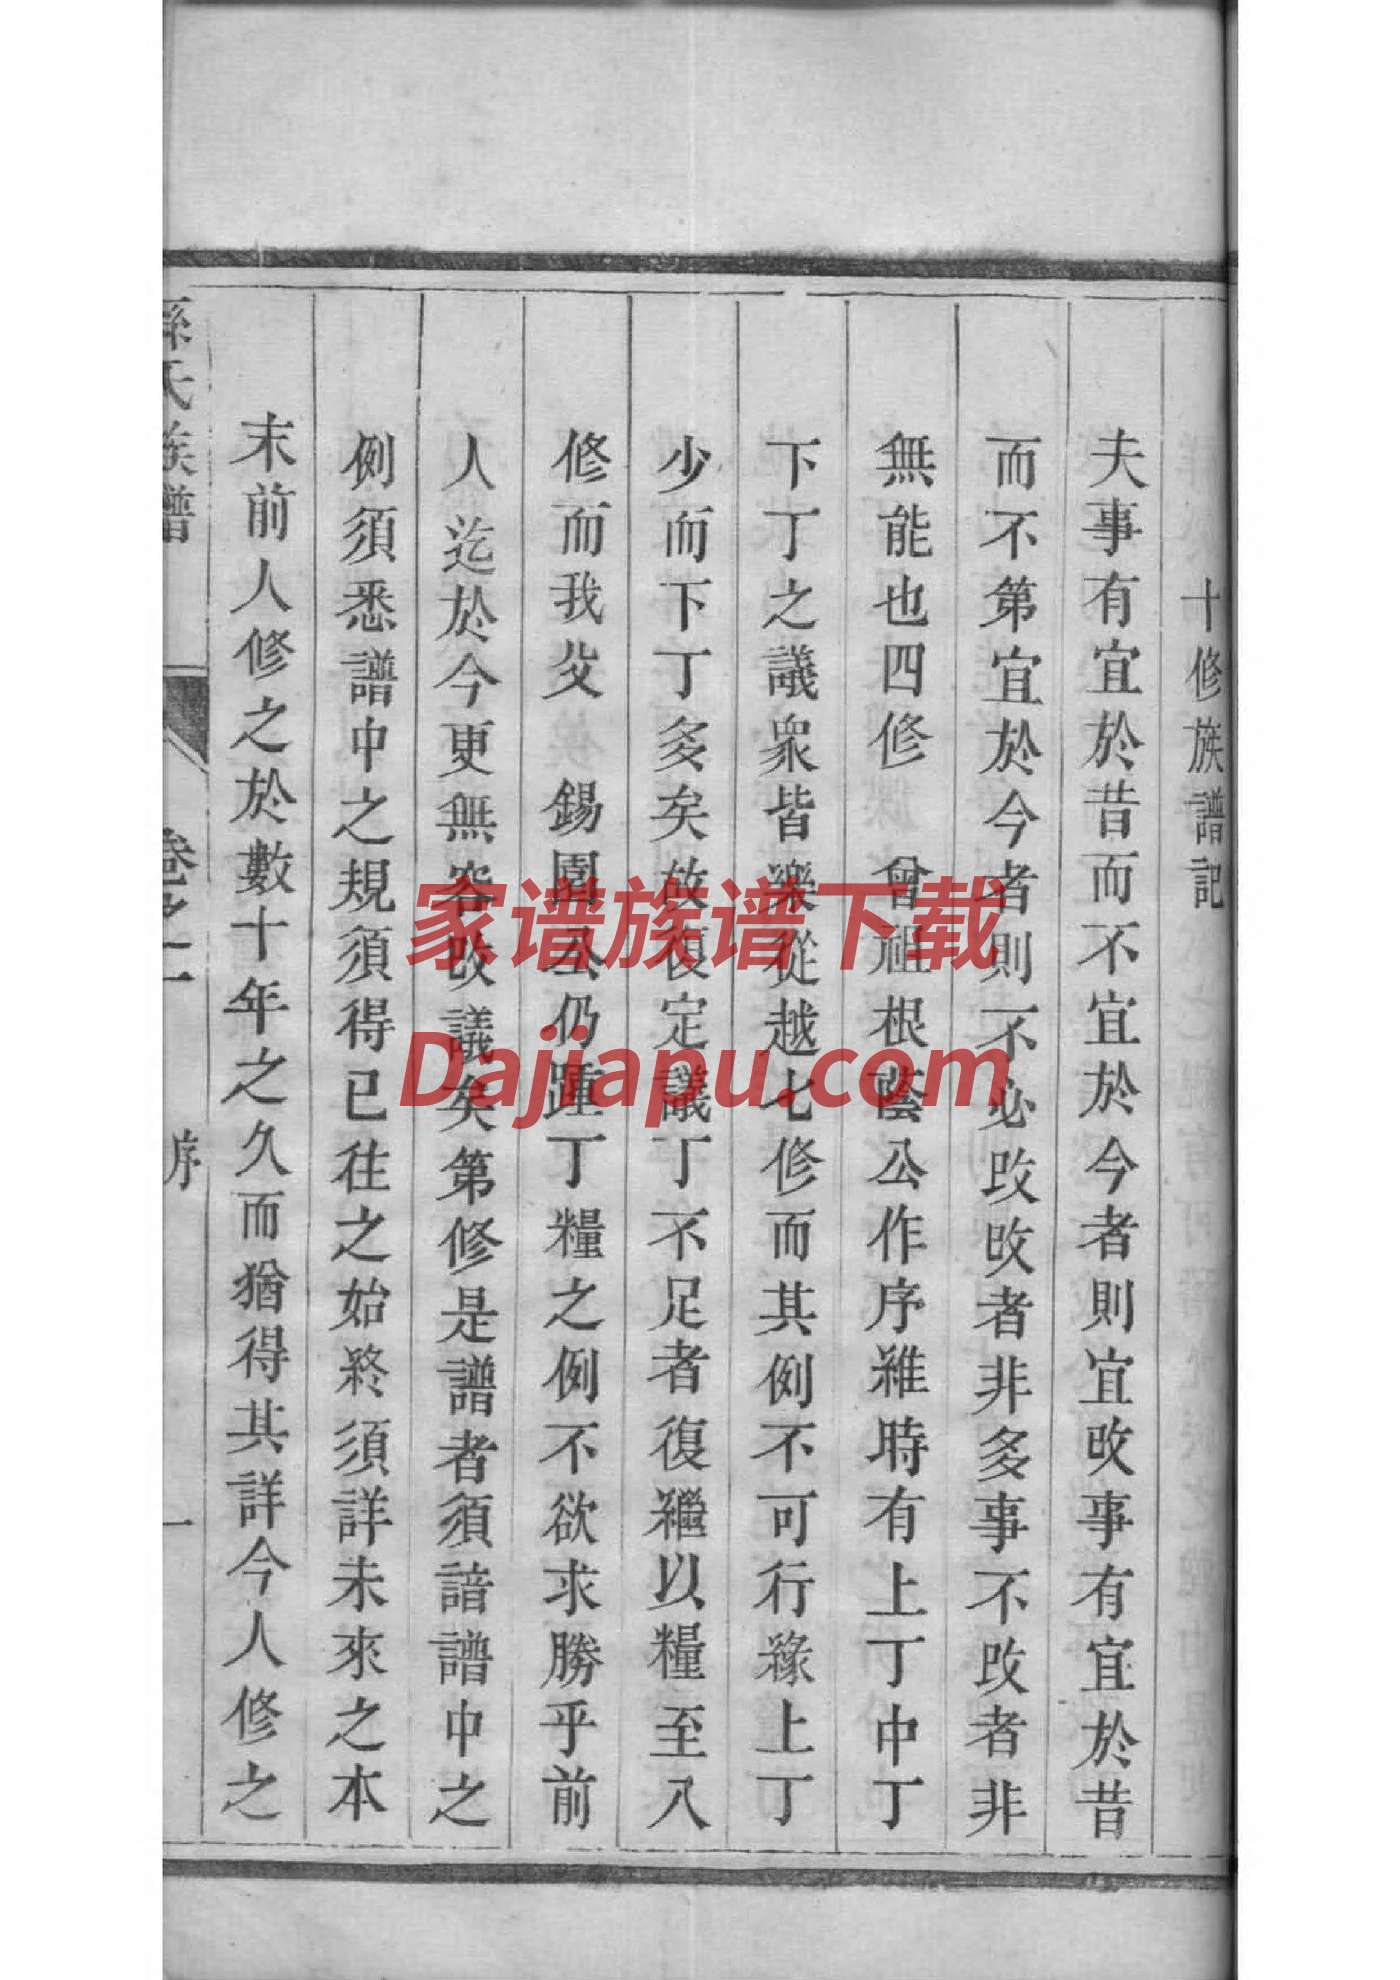 十修族譜記
夫事有宜於昔而不宜於今者則宜改事有宜於昔
而不第宜於今者則不必改改者非多事不改者非
無能也四修 曾祖根蔭公作序雖時有上丁中丁
下丁之議衆皆樂從越七修而其例不可行緣上丁
少而下丁多矣故復定議丁不足者復繼以糧至八
修而我父 錫園公仍踵丁糧之例不欲求勝乎前
人迄於今更無容改議矣第修是譜者須諳譜中之
例須悉譜中之規須得已往之始終須詳未來之本
末前人修之於數十年之久而猶得其詳今人修之
孫氏族譜 卷之一 序 一
家谱族谱下载
Dajiapu.com